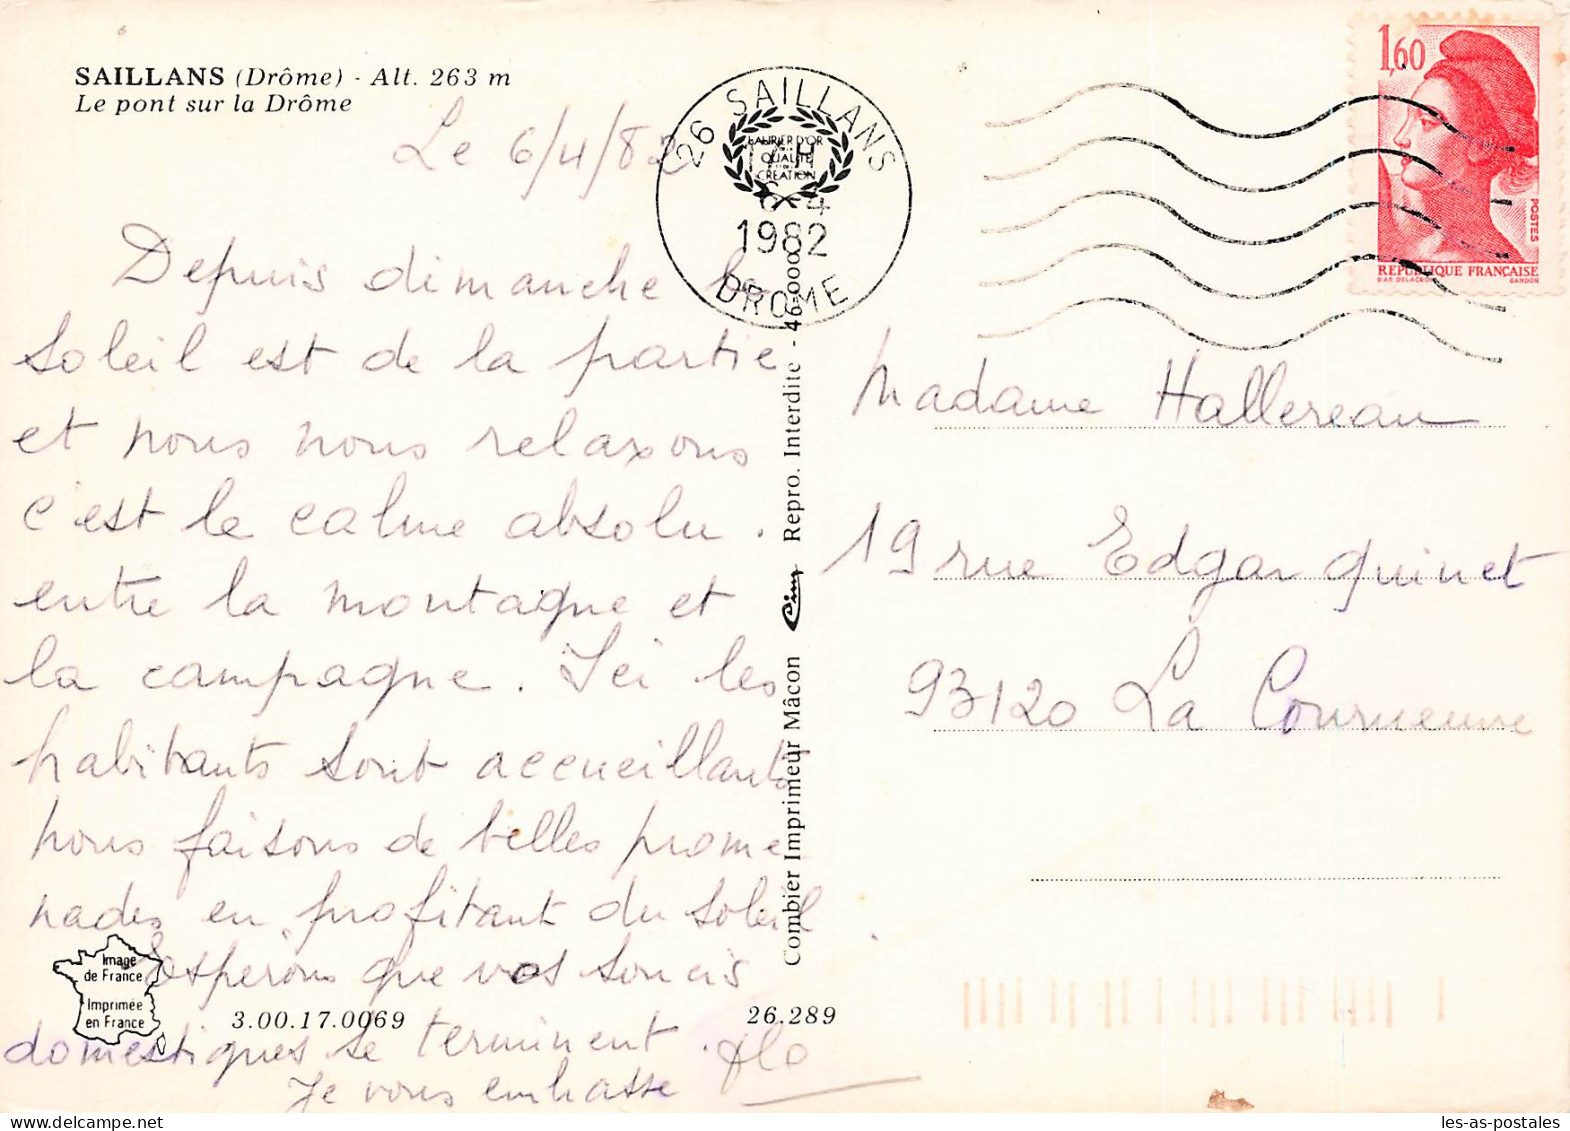 SAILLANS (Drôme) - Alt. 263 m
Le pont sur la Drôme
Le 6/4/82
Depuis dimanche le
soleil est de la partie
et nous nous relaxons
c'est le calme absolu.
entre la montagne et
la campagne. Ici les
habitants sont accueillants
nous faisons de belles prome
nades en profitant du soleil.
Esperons que vos soucis
domestiques se terminent.
Je vous embrasse Flo
Image
de France
Imprimée
en France
3.00.17.0069
26.289
Combier Imprimeur Mâcon Cim Repro. Interdite - 46-000
26 SAILLANS
LAURIER D'OR
QUALITE
CREATION
6-4
1982
DROME
1,60
POSTES
REPUBLIQUE FRANÇAISE
D'AP. DELACROIX
GANDON
Madame Hallereau
19 rue Edgar quinet
93120 La Courneuve
les-as-postales